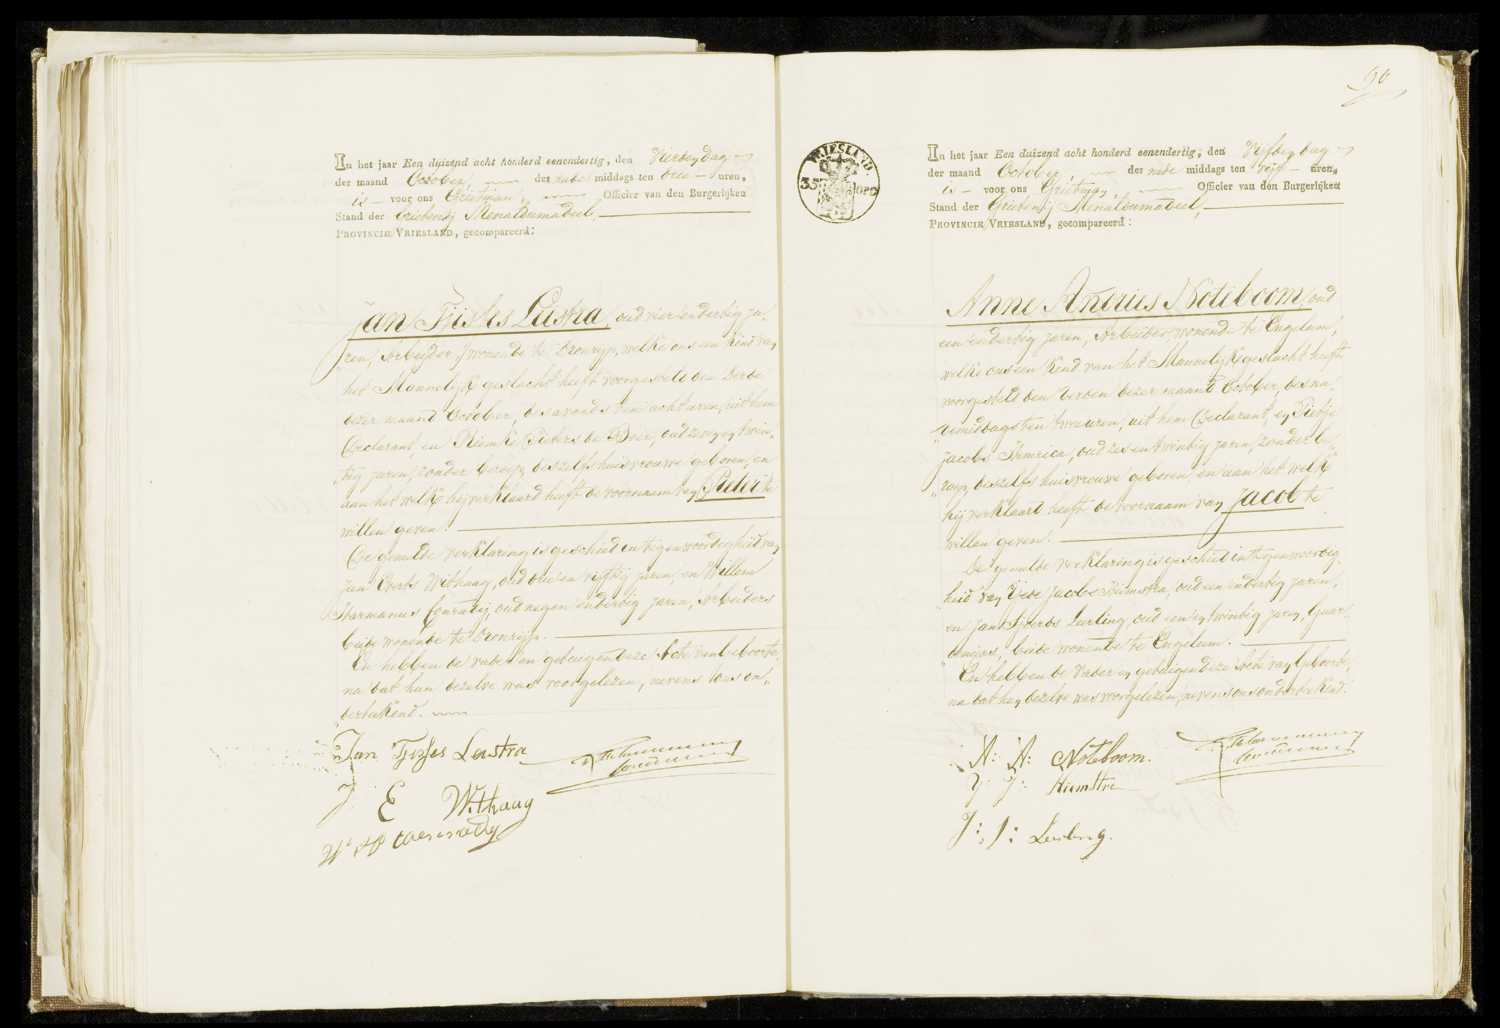 In het jaar Een duizend acht honderd eenendertig, den Vierden dag
der maand October, der nade middags ten drie uren,
is voor ons Grietman, Officier van den Burgerlijken
Stand der Grietenij Menaldumadeel,
PROVINCIE VRIESLAND, gecompareerd:
Jan Tjisses Leistra, oud vier endertig ja-
ren, Arbeider, wonende te Dronrijp, welke ons een Kind van
het Mannelijk geslacht heeft voorgesteld den derde
dezer maand October, des avonds ten acht uren, uit hem
Declarant, en Pieters de Boer, oud zeven en twin-
tig jaren, zonder beroep, deszelfs huisvrouwe geboren, en
aan het welk hij verklaard heeft de voornaam van Pieter te
willen geven.
De gemelde verklaring is geschied in tegenwoordigheid van
Jan Everts Withaag, oud drie en vijftig jaren, en Willem
Harmanus, oud negen endertig jaren, Arbeiders
beide wonende te Dronrijp.
En hebben de vader en getuigen deze Acte van Geboorte,
na dat hun dezelve was voorgelezen, nevens ons on-
derteekend.
Jan Tjisses Leistra
J E Withaag
90
VRIESLAND
35
In het jaar Een duizend acht honderd eenendertig, den Vijfden dag
der maand October der nade middags ten vijf uren,
is voor ons Grietman, Officier van den Burgerlijken
Stand der Grietenij Menaldumadeel,
PROVINCIE VRIESLAND, gecompareerd:
Anne Andries Noteboom, oud
een endertig jaren, Arbeider, wonende te Engelum,
welke ons een Kind van het Mannelijk geslacht heeft
voorgesteld den Derden dezer maand October, des na-
middags ten twee uren, uit hem Declarant, en Tietje
Jacobs, oud zes en twintig jaren, zonder be-
roep, deszelfs huisvrouwe geboren, en aan het welk
hij verklaart heeft de voornaam van Jacob te
willen geven.
De gemelde verklaring is geschied in tegenwoordig-
heid van Ijede Jacobs Hiemstra, oud een endertig jaren,
en Jan Sjoerds Leuling, oud een en twintig jaren,
beide wonende te Engelum.
En hebben de Vader en getuigen deze Acte van Geboorte,
na dat hen dezelve was voorgelezen, nevens ons onderteekend.
A: A: Noteboom.
Y J: Hiemstra
J: S: Leuling.